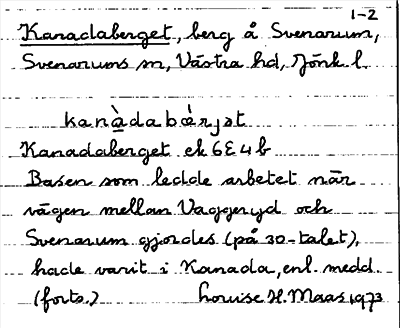 1-2
Kanadaberget, berg å Svenarum,
Svenarums sn, Västra hd, Jönk. l.
kanàdabærjət
Kanadaberget ek 6E4b
Basen som ledde arbetet när
vägen mellan Vaggeryd och
Svenarum gjordes (på 30-talet),
hade varit i Kanada, enl. medd.
(forts.) Louise H. Maas 1973